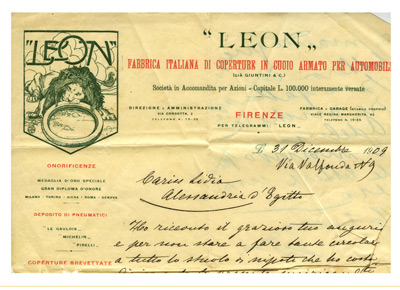 "LEON„
"LEON„
FABBRICA ITALIANA DI COPERTURE IN CUOIO ARMATO PER AUTOMOBILI
(GIÀ GIUNTINI & C.)
Società in Accomandita per Azioni - Capitale L. 100.000 interamente versato
DIREZIONE E AMMINISTRAZIONE
VIA CONDOTTA, 2
TELEFONO N.
FIRENZE
PER TELEGRAMMI "LEON„
FABBRICA E GARAGE
VIALE REGINA MARGHERITA, 42
TELEFONO N.
31 Dicembre 1909
Via Valfonda N 9
ONORIFICENZE
MEDAGLIA D'ORO SPECIALE
GRAN DIPLOMA D'ONORE
MILANO - TORINO - AICHA - ROMA - GENOVA
DEPOSITO DI PNEUMATICI
LE GAULOIS
MICHELIN
PIRELLI
COPERTURE BREVETTATE
Carin Lidia
Alessandria d'Egitto
Ho ricevuto il grazioso tuo augurio
e per non stare a fare tante circolari
a tutto lo stuolo di nipote che ho